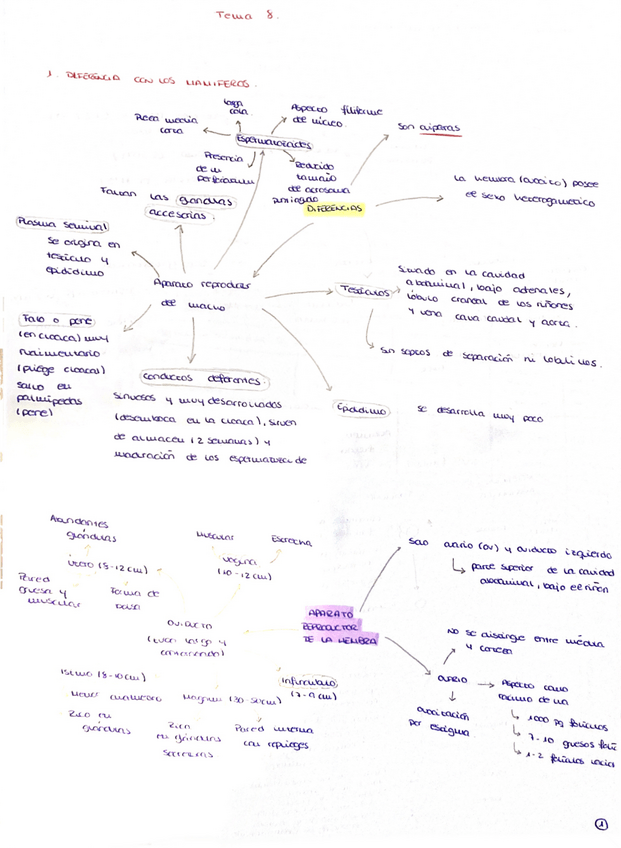 Tema 8.
1. DIFERENCIA CON LOS MAMIFEROS.
larga
cola
Aspecto filiforme
del núcleo
Poca media
Espermatozoides
Son ovíparas
Presencia
de un
perforatorium
Reducido
tamaño
de acrosoma
DIFERENCIAS
La hembra (avocito) posee
el sexo heterogamético
Faltan las glándulas
accesorias.
Plasma seminal
se origina en
testículo y
epidídimo
Aparato reproductor
del macho
Testículos
Situado en la cavidad
abdominal, bajo adrenales,
lóbulo craneal de los riñones
y vena cava caudal y aorta.
Sin septos de separación ni lobulillos.
Falo o pene
(en cloaca) muy
rudimentario
(pliege cloaca)
salvo en
palmípedas
(pene)
Conductos deferentes.
sinuosos y muy desarrollados
(desemboca en la cloaca), sirven
de almacén (2 semanas) y
maduración de los espermatozoide
Epidídimo
se desarrolla muy poco
Abundantes
glándulas
Muscular
Estrecha
útero (8-12cm)
vagina
(10-12cm)
Pared
gruesa y
muscular
Forma de
OVIDUCTO
(tubo largo y
APARATO
REPRODUCTOR
DE LA HEMBRA
Solo ovario (ov) y oviducto izquierdo
parte superior de la cavidad
abdominal, bajo el riñón
NO se distinge entre médula
y corteza
OVARIO
Aspecto como
racimo de uva
ovocitación
por estigma
1000 pq folículos
7-10 gruesos folí
1-2 folículos
Istmo (8-10cm)
Menor diámetro
Magnum (30-50cm)
Infundíbulo
(7-9cm)
Rico en
glándulas
Rica
en glándulas
secretoras
Pared interna
con repliegues
1